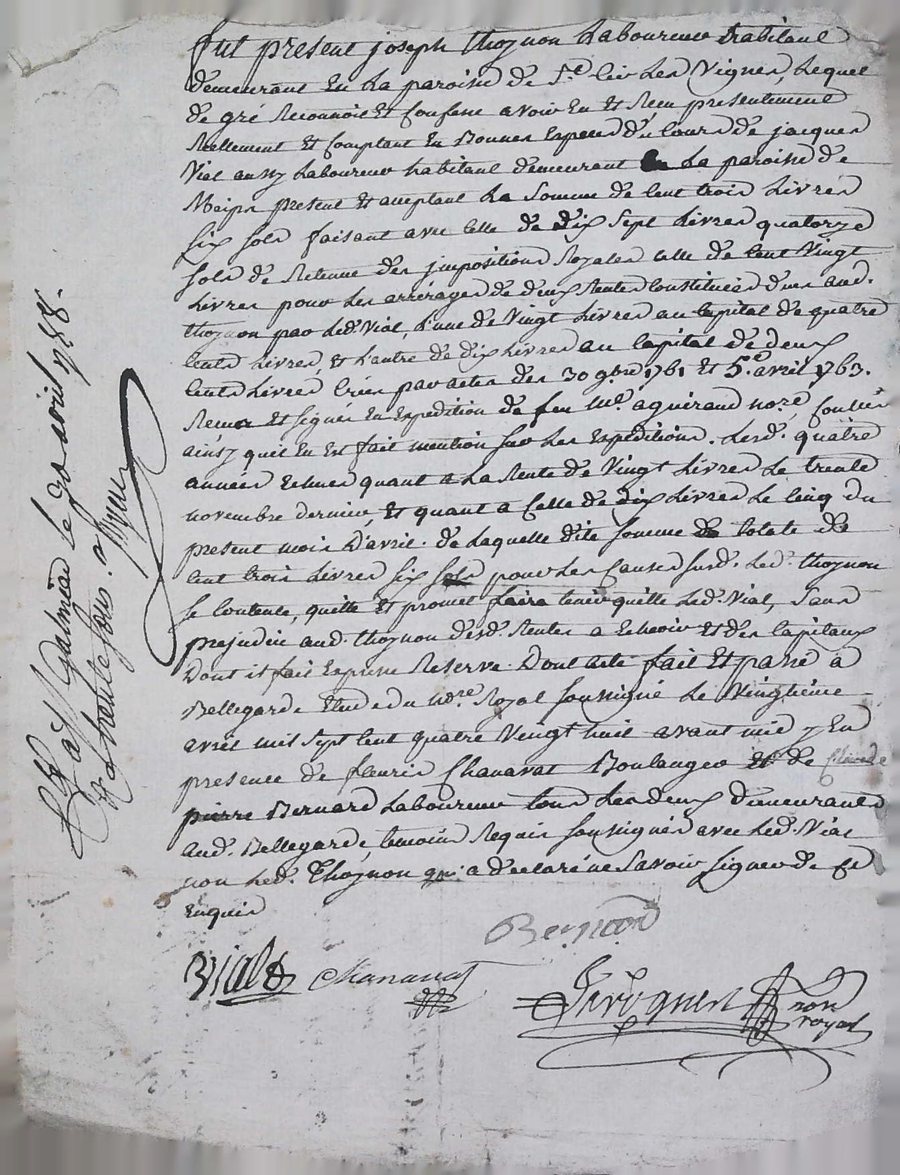 fut present joseph thoynon Laboureur habitant
demeurant En La paroisse de St Cir Les Vignes, Lequel
de gré Reconnoit Et Confesse avoir Eu Et Recu presentement
Reellement Et Comptant En Bonnes Especes d'u Cours de jacques
Vial aussy Laboureur habitant demeurant En La paroisse de
present Et acceptant La Somme de Cent trois Livres
Six Sols faisant avec Celle de Dix Sept Livres quatorze
Sols de Retenue des jmpositions Royales celle de Cent Vingt
Livres pour Les arrérages de deux Rentes Constituées dues aud.
thoynon par Led. Vial, L'une de Vingt Livres au Capital de quatre
Cents Livres, Et L'autre de dix Livres au Capital de deux
Cents Livres Créés par actes des 30 9bre 1761 Et 5e avril 1763.
Recus Et signes En Expedition de feu Me aguiraud nore
ainsy quil En Est fait mention sur Les Expeditions. Lesd. quatre
années Echues quant a La Rente de Vingt Livres Le trente
novembre dernier, Et quant a Celle de dix Livres Le Cinq du
present mois D'avril. de Laquelle dite somme totale de
Cent trois Livres Six Sols pour Les Causes susd. Led. thoynon
se Contente, quitte Et promet faire tenir quitte Led. Vial, Sans
prejudice aud. thoynon desd. Rentes a Echeoir Et des Capitaux
Dont il fait Expresse Reserve. Dont acte fait Et passé à
Bellegarde Etude du nore Royal soussigné Le Vingtième
avril mil sept Cent quatre Vingt huit avant midy En
presence de fleuris Chanavat Boulanger Et de
pierre Bernard Laboureur tous Les deux demeurants
aud. Bellegarde, temoins Requis soussignés avec Led. Vial
non Led. Thoynon qui a declaré ne Savoir Signer de Ce
Enquis
Bernard
Vial Chanavat
nore
royal
Cllé a St Galmier le 30 avril 1788.
R trente sous.